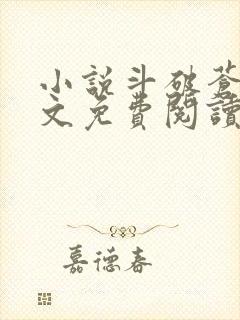 小說斗破蒼
文免費閱讀
嘉德春